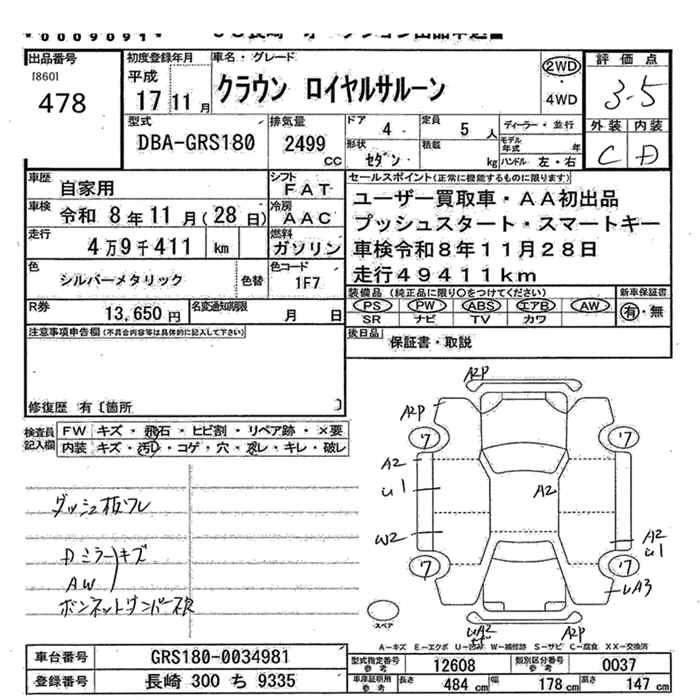 0009091
出品番号
[860]
478
初度登録年月
平成
17 11 月
車名・グレード
クラウン ロイヤルサルーン
2WD
・
4WD
評価点
3.5
外装 内装
C D
型式
DBA-GRS180
排気量
2499
CC
ドア
4
定員
5 人
ディーラー・並行
形状
セダン
積載
kg
モデル年式 年
ハンドル 左・右
車歴
自家用
シフト
FAT
車検
令和 8年 11月(28日)
冷房
AAC
走行
4万9千411 km
燃料
ガソリン
色
シルバーメタリック
色替
色コード
1F7
R券
13,650 円
名変通知期限
月 日
セールスポイント(正常に機能するものに限ります)
ユーザー買取車・AA初出品
プッシュスタート・スマートキー
車検令和8年11月28日
走行49411km
装備品(純正品に限り○をつけてください)
PS PW ABS エアB AW
SR ナビ TV カワ
新車保証書
有・無
後日品
保証書・取説
注意事項申告欄(不具合内容等は具体的に記入して下さい)
修復歴 有〔箇所 〕
検査員記入欄
FW キズ・飛石・ヒビ割・リペア跡・×要
内装 キズ・汚D・コゲ・穴・スレ・キレ・破レ
ダッシュ板ワレ
Dミラー キズ
AW
A2P
A2P
7
7
A2
U1
A2
W2
A2
U1
7
7
UA3
UA2
A2P
スペア
A-キズ E-エクボ U-凹ミ W-補修跡 S-サビ C-腐食 XX-交換済
車台番号
GRS180-0034981
登録番号
長崎 300 ち 9335
型式指定番号
参考
12608
類別区分番号
参考
0037
車庫証明用
参考
長さ 484 cm
幅 178 cm
高さ 147 cm